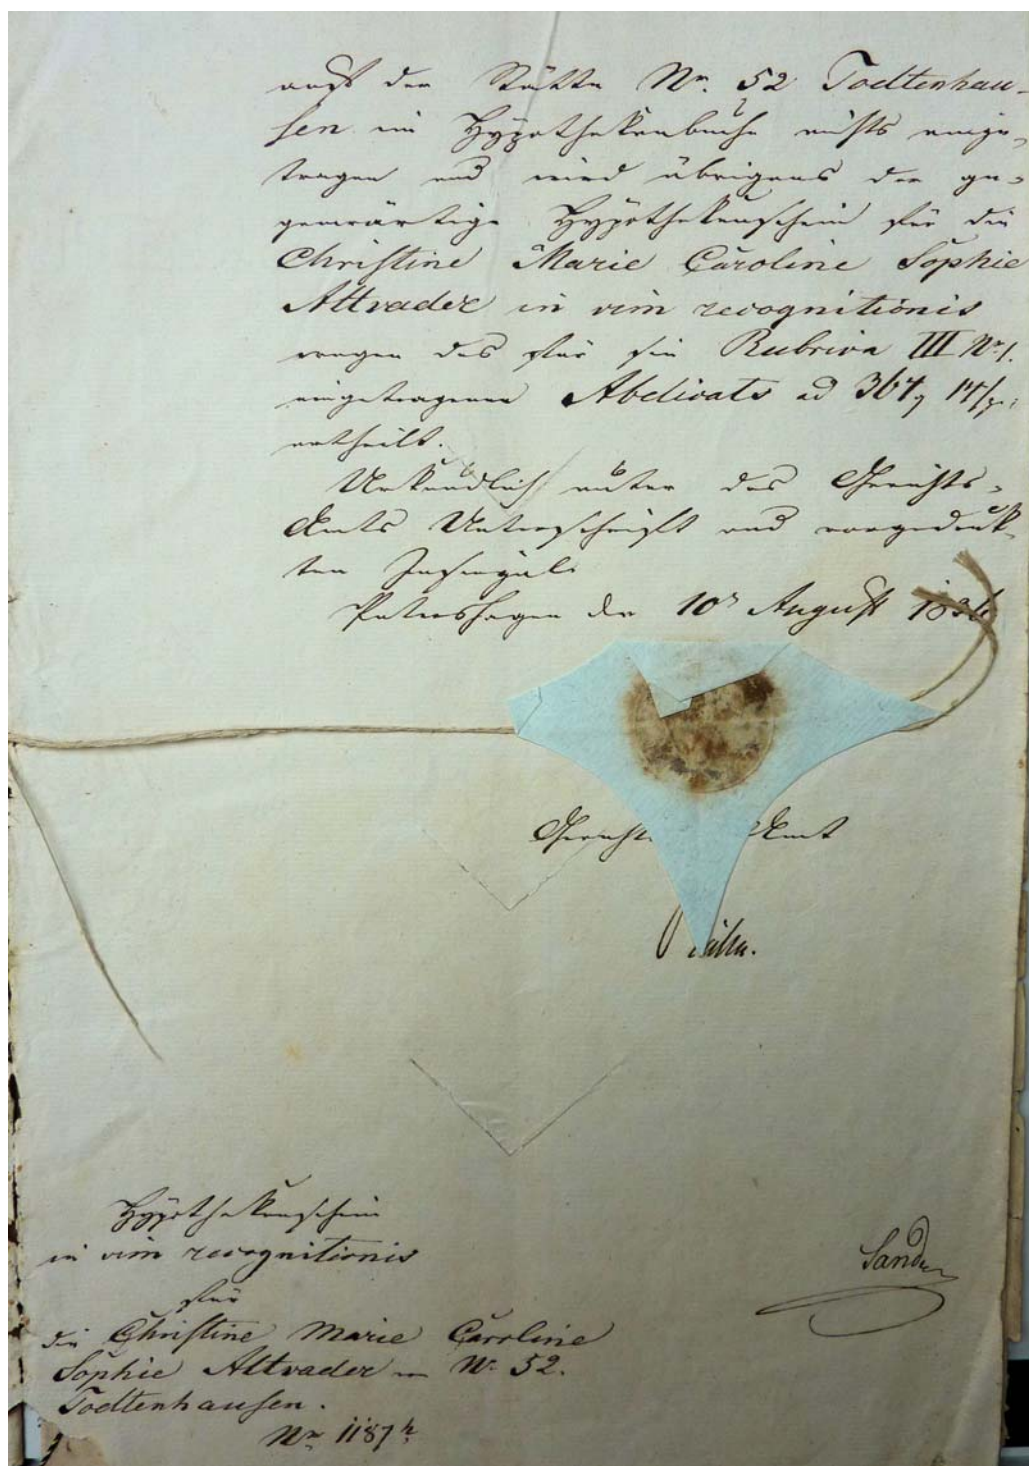 auf der Stätte No. 52 Todtenhau-
sen im Hypothekenbuche nichts einge-
tragen und wird übrigens der ge-
genwärtige Hypothekenschein für die
Christine Marie Caroline Sophie
Altvader in vim recognitionis
wegen des für sie Rubrica III No. 1.
eingetragenen Abdicats ad 364
ertheilt.
Urkundlich unter des Gerichts-
Amts Unterschrift und vorgedruk-
ten Insiegel.
Petershagen den 10n August 1836
Gerichts Amt
Hypothekenschein
in vim recognitionis
für
die Christine Marie Caroline
Sophie Altvader No. 52.
Todtenhausen.
No. 1187
Sander